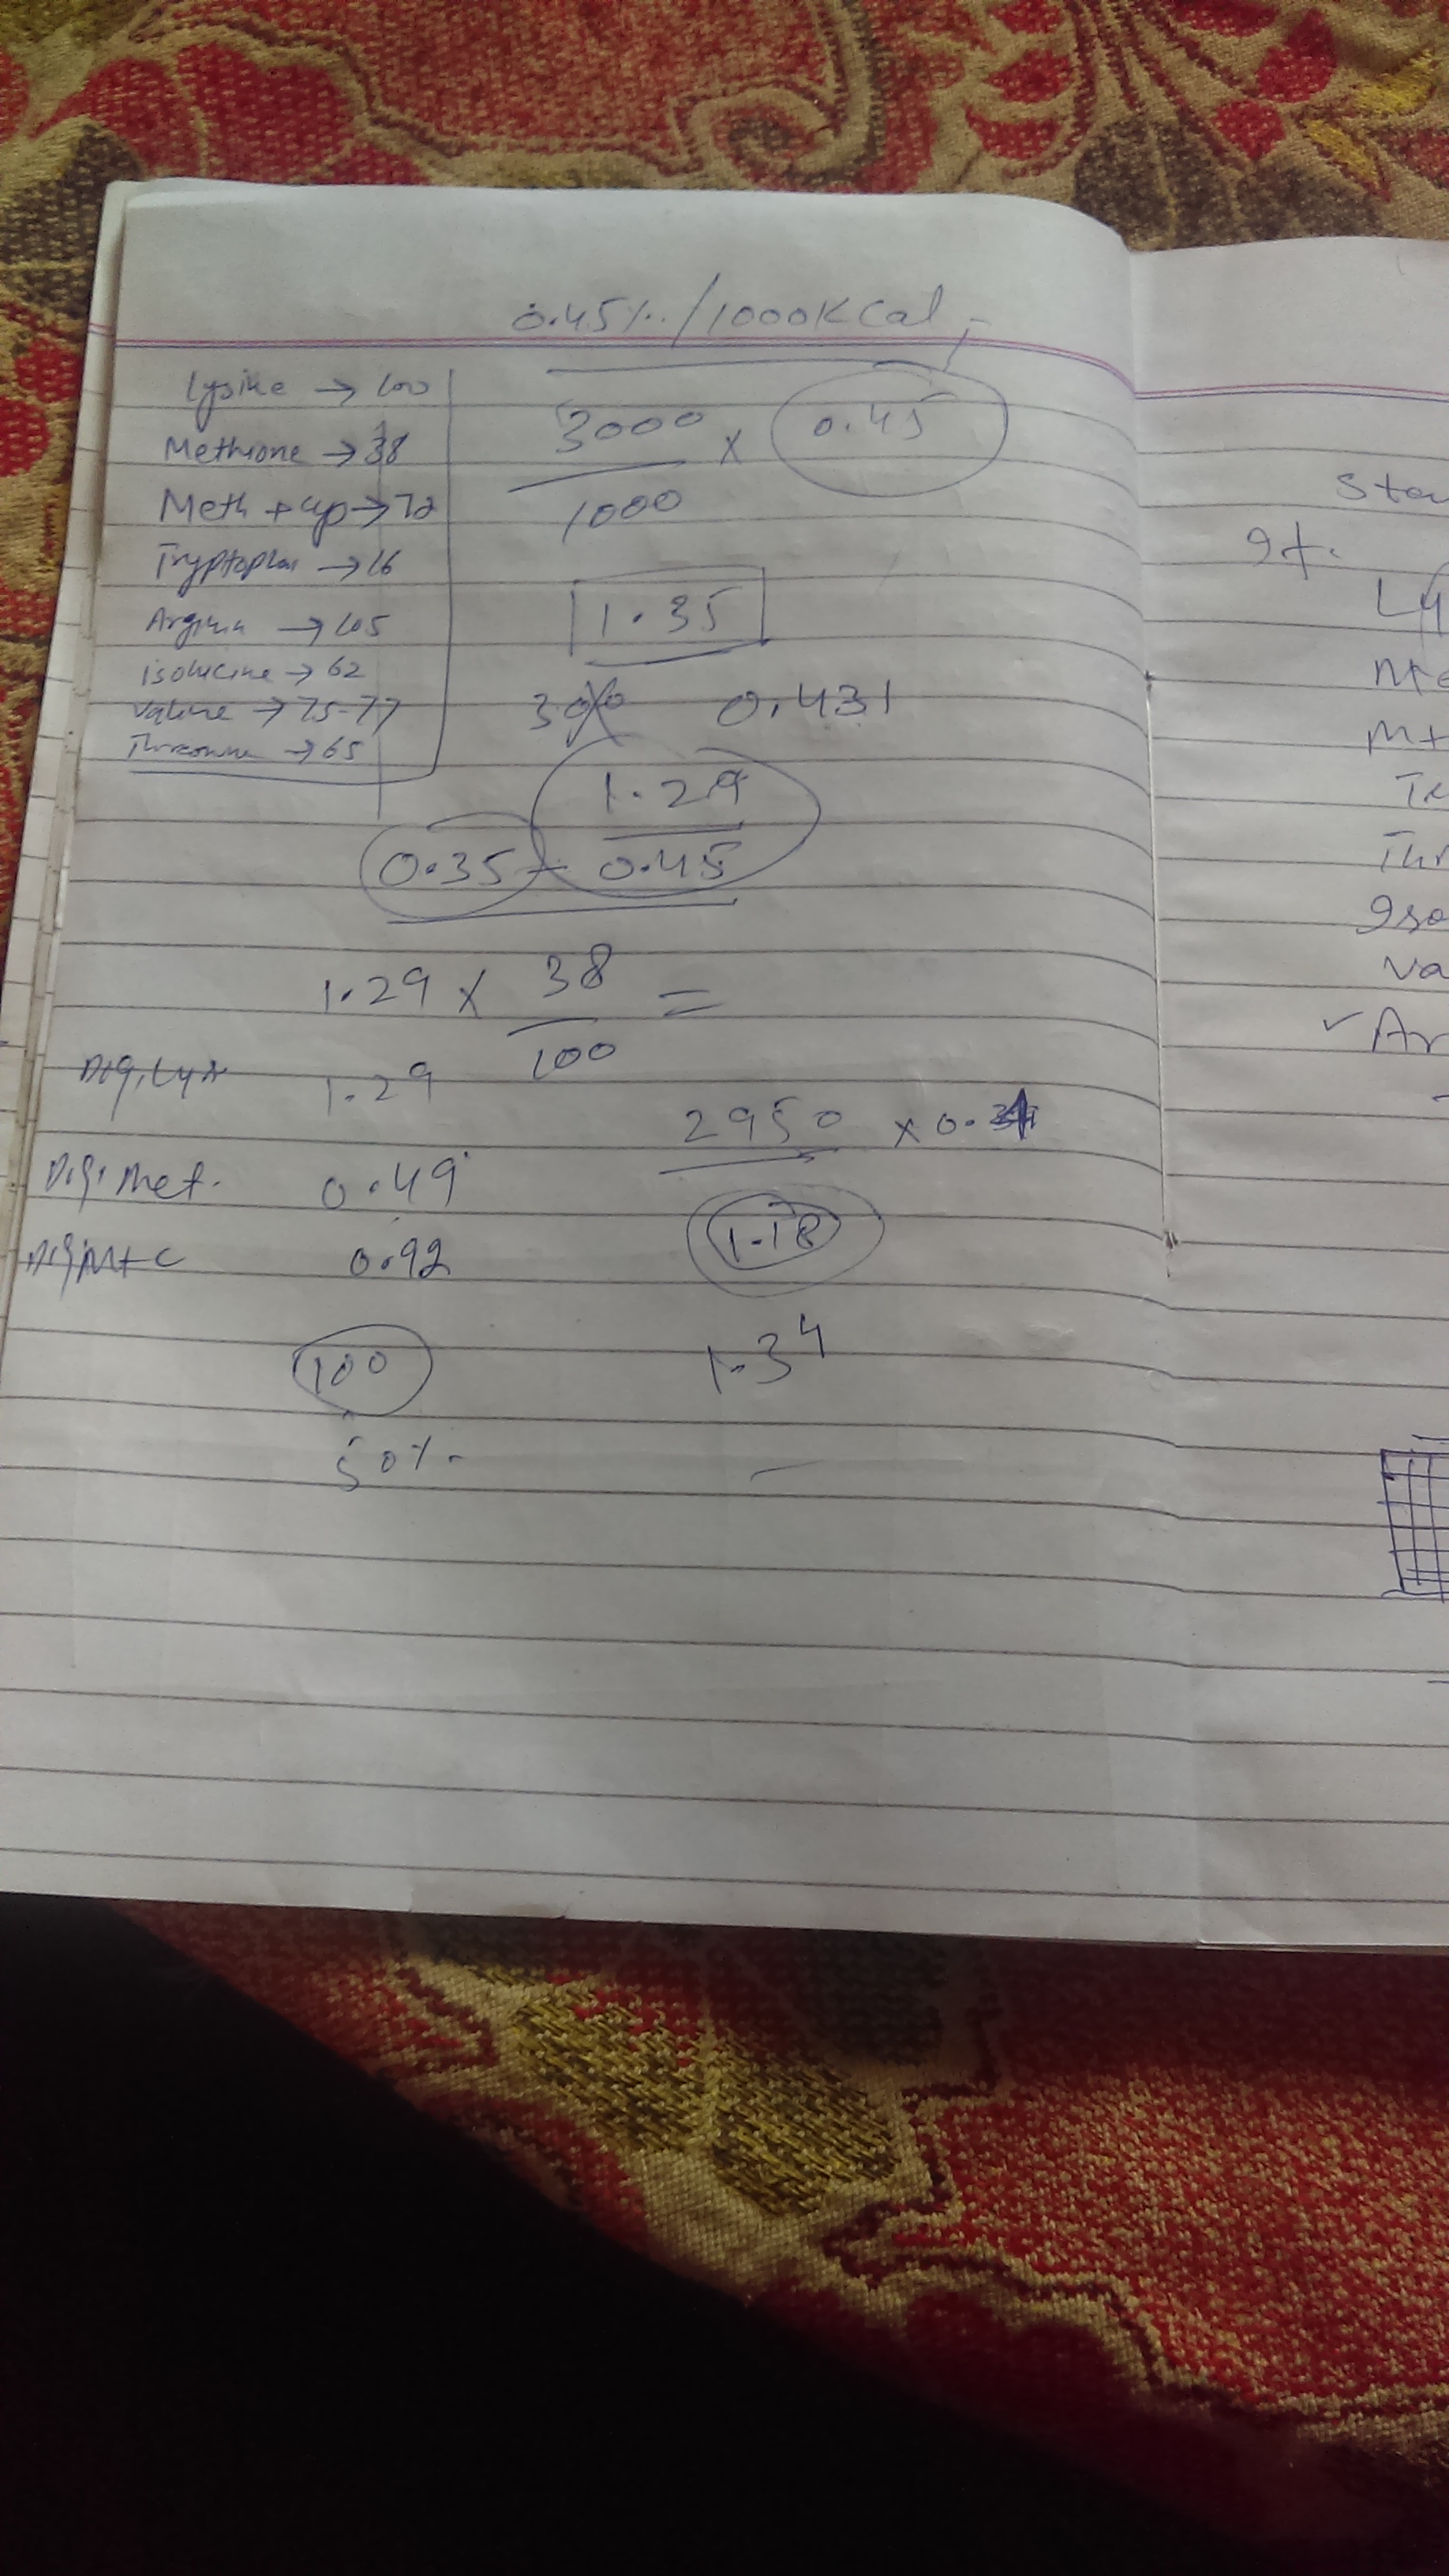 0.45%/1000KCal
Lysine → 100
Methione → 38
Meth + cyp → 72
Tryptophan → 16
Arginin → 105
isolucine → 62
valine → 75-77
Threonine → 65
3000 x 0.45
1000
1.35
30% 0.431
1.29
0.35 - 0.45
1.29 x 38 =
100
Dig, Lys 1.29
2950 x 0.
Digi Met. 0.49
1.18
Dig M+C 0.92
100
1.34
50%
Sta
It.
Ly
Me
M+
Tr
Thr
Iso
Va
✓ Ar